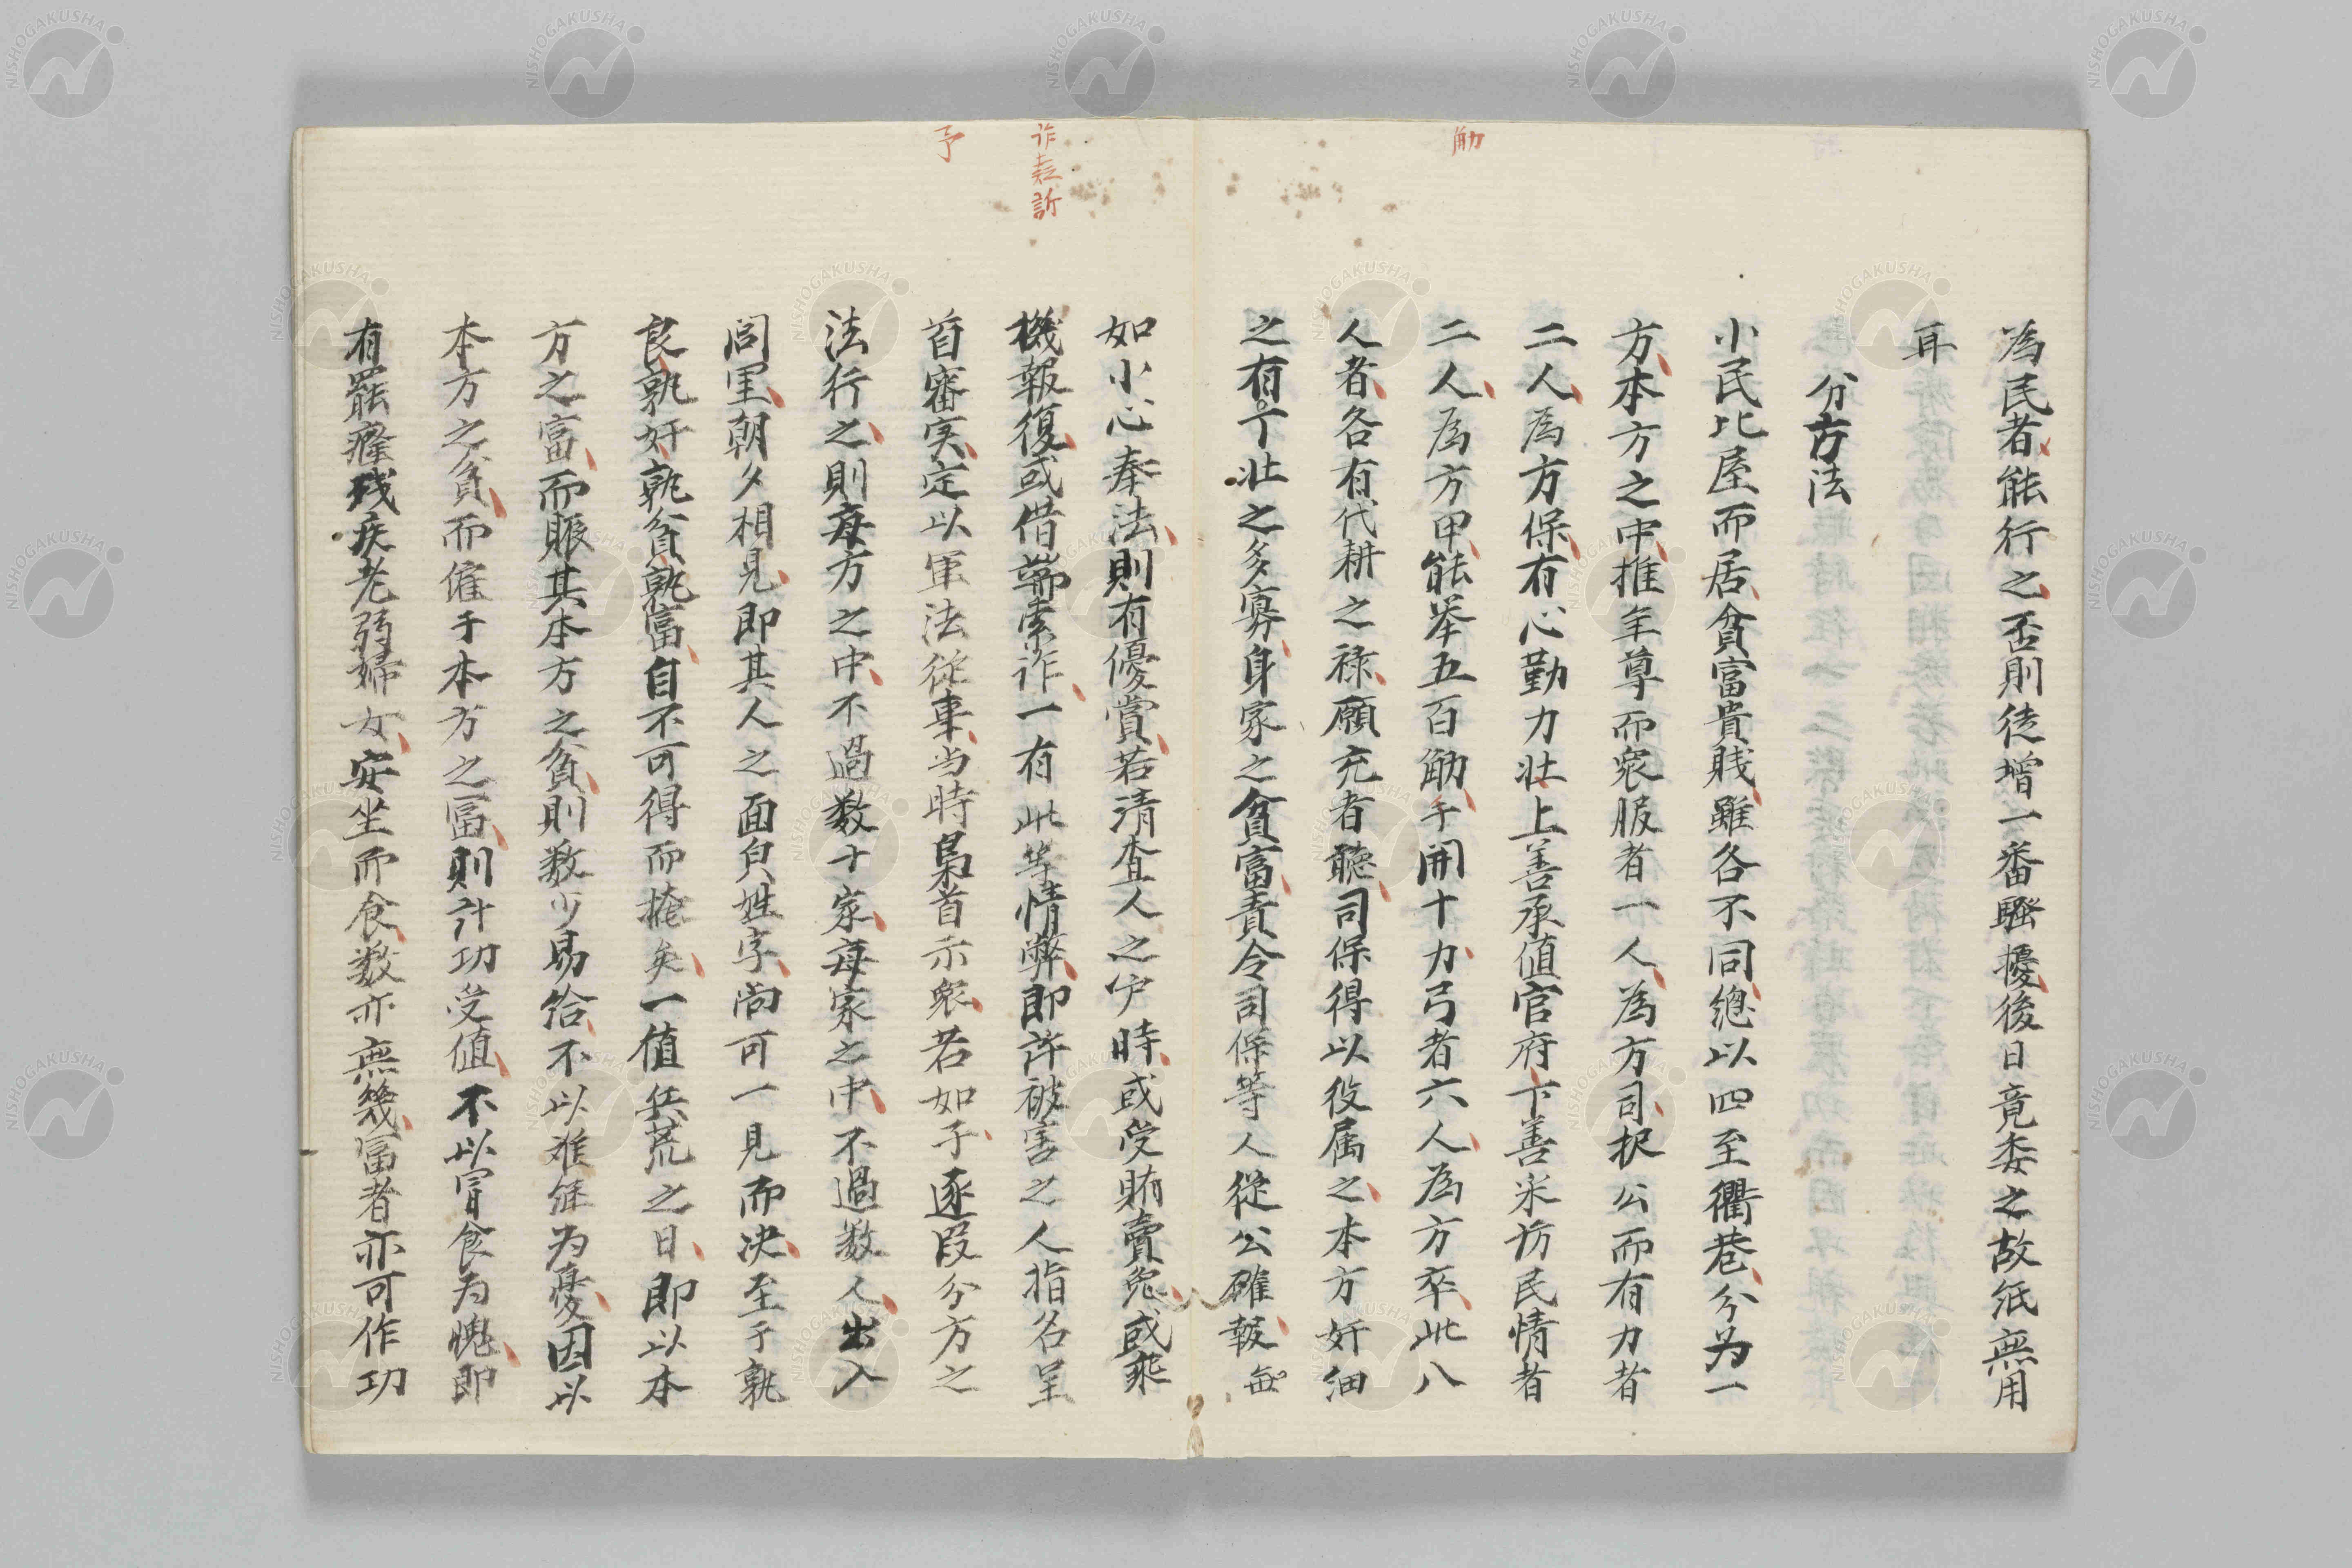 為民者能行之否則徒增一番騷擾後日竟委之故紙無用
耳
分方法
小民比屋而居貧富貴賎雖各不同總以四至衢巷分为一
方本方之中推年尊而衆服者一人為方司択公而有力者
二人為方保有心勤力壮上善承値官府下善米坊民情者
二人為方甲能举五百觔于開十力弓者六人為方卒此八
人者各有代耕之禄願充者聴司保得以役属之本方奸細
之有亇壮之多寡身家之貧富責令司保等人從公確報毎
如小心奉法則有優賞若清査人之户時或受賄賣免或乘
機報復或借端索诈一有此等情弊即許被害之人指名呈
首審実定以军法從事当時梟首示衆若如子逐段分方之
法行之則毎方之中不過数十家毎家之中不過数人出入
閭里朝夕相見即其人之面皃姓字尚可一見而决至于孰
良孰奸孰貧孰富自不可得而掩矣一值兵荒之日即以本
方之富而賑其本方之貧則数少易给不以难継为憂因以
本方之貧而僱于本方之富則计功受値不以冒食为愧即
有罷癃残疾老弱婦女安坐而食数亦無幾富者亦可作功
觔
诈
訴
予
NISHOGAKUSHA